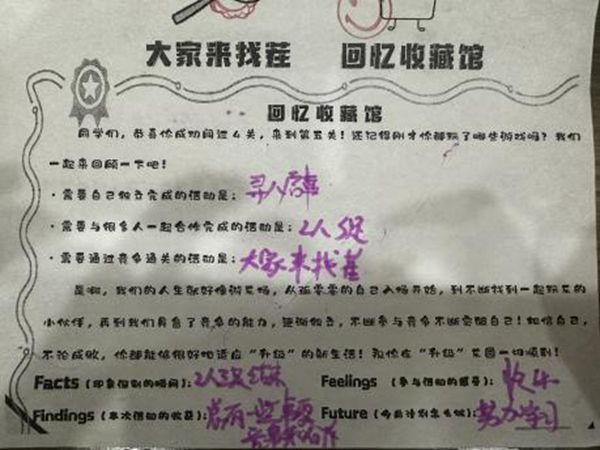 大家来找茬 回忆收藏馆
回忆收藏馆
同学们，恭喜你成功闯过4关，来到第五关！还记得刚才你都玩了哪些游戏吗？我们
一起来回顾一下吧！
·需要自己独立完成的活动是：寻人启事
·需要与很多人一起合作完成的活动是：2人3足
·需要通过竞争通关的活动是：大家来找茬
是啊，我们的人生就好像游乐场，从孤零零的自己入场开始，到不断找到一起玩乐的
小伙伴，再到我们具备了竞争的能力，逐渐独立，不断参与竞争不断突破自己！相信自己，
不论成败，你都能够很好地适应“升级”的新生活！祝你在“升级”乐园一切顺利！
Facts (印象深刻的瞬间)：2人3足 Feelings (参与活动的感受)：
Findings (本次活动的收获)：总有一些 Future (今后计划怎么做)：努力学习